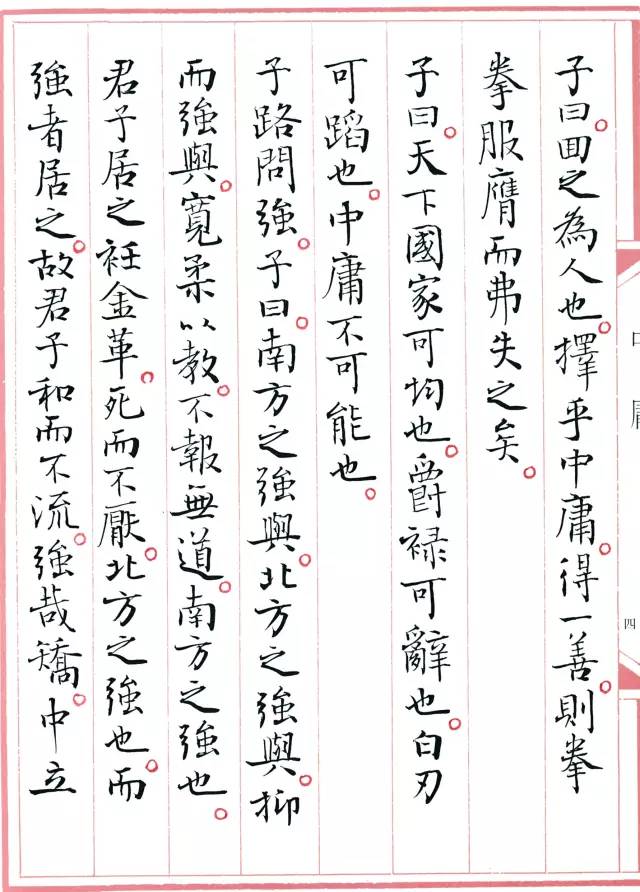 子曰。回之為人也。擇乎中庸。得一善。則拳
拳服膺而弗失之矣。
子曰。天下國家可均也。爵祿可辭也。白刃
可蹈也。中庸不可能也。
子路問強。子曰。南方之強與。北方之強與。抑
而強與。寬柔以教。不報無道。南方之強也。
君子居之。衽金革。死而不厭。北方之強也。而
強者居之。故君子和而不流。強哉矯。中立
中庸
四